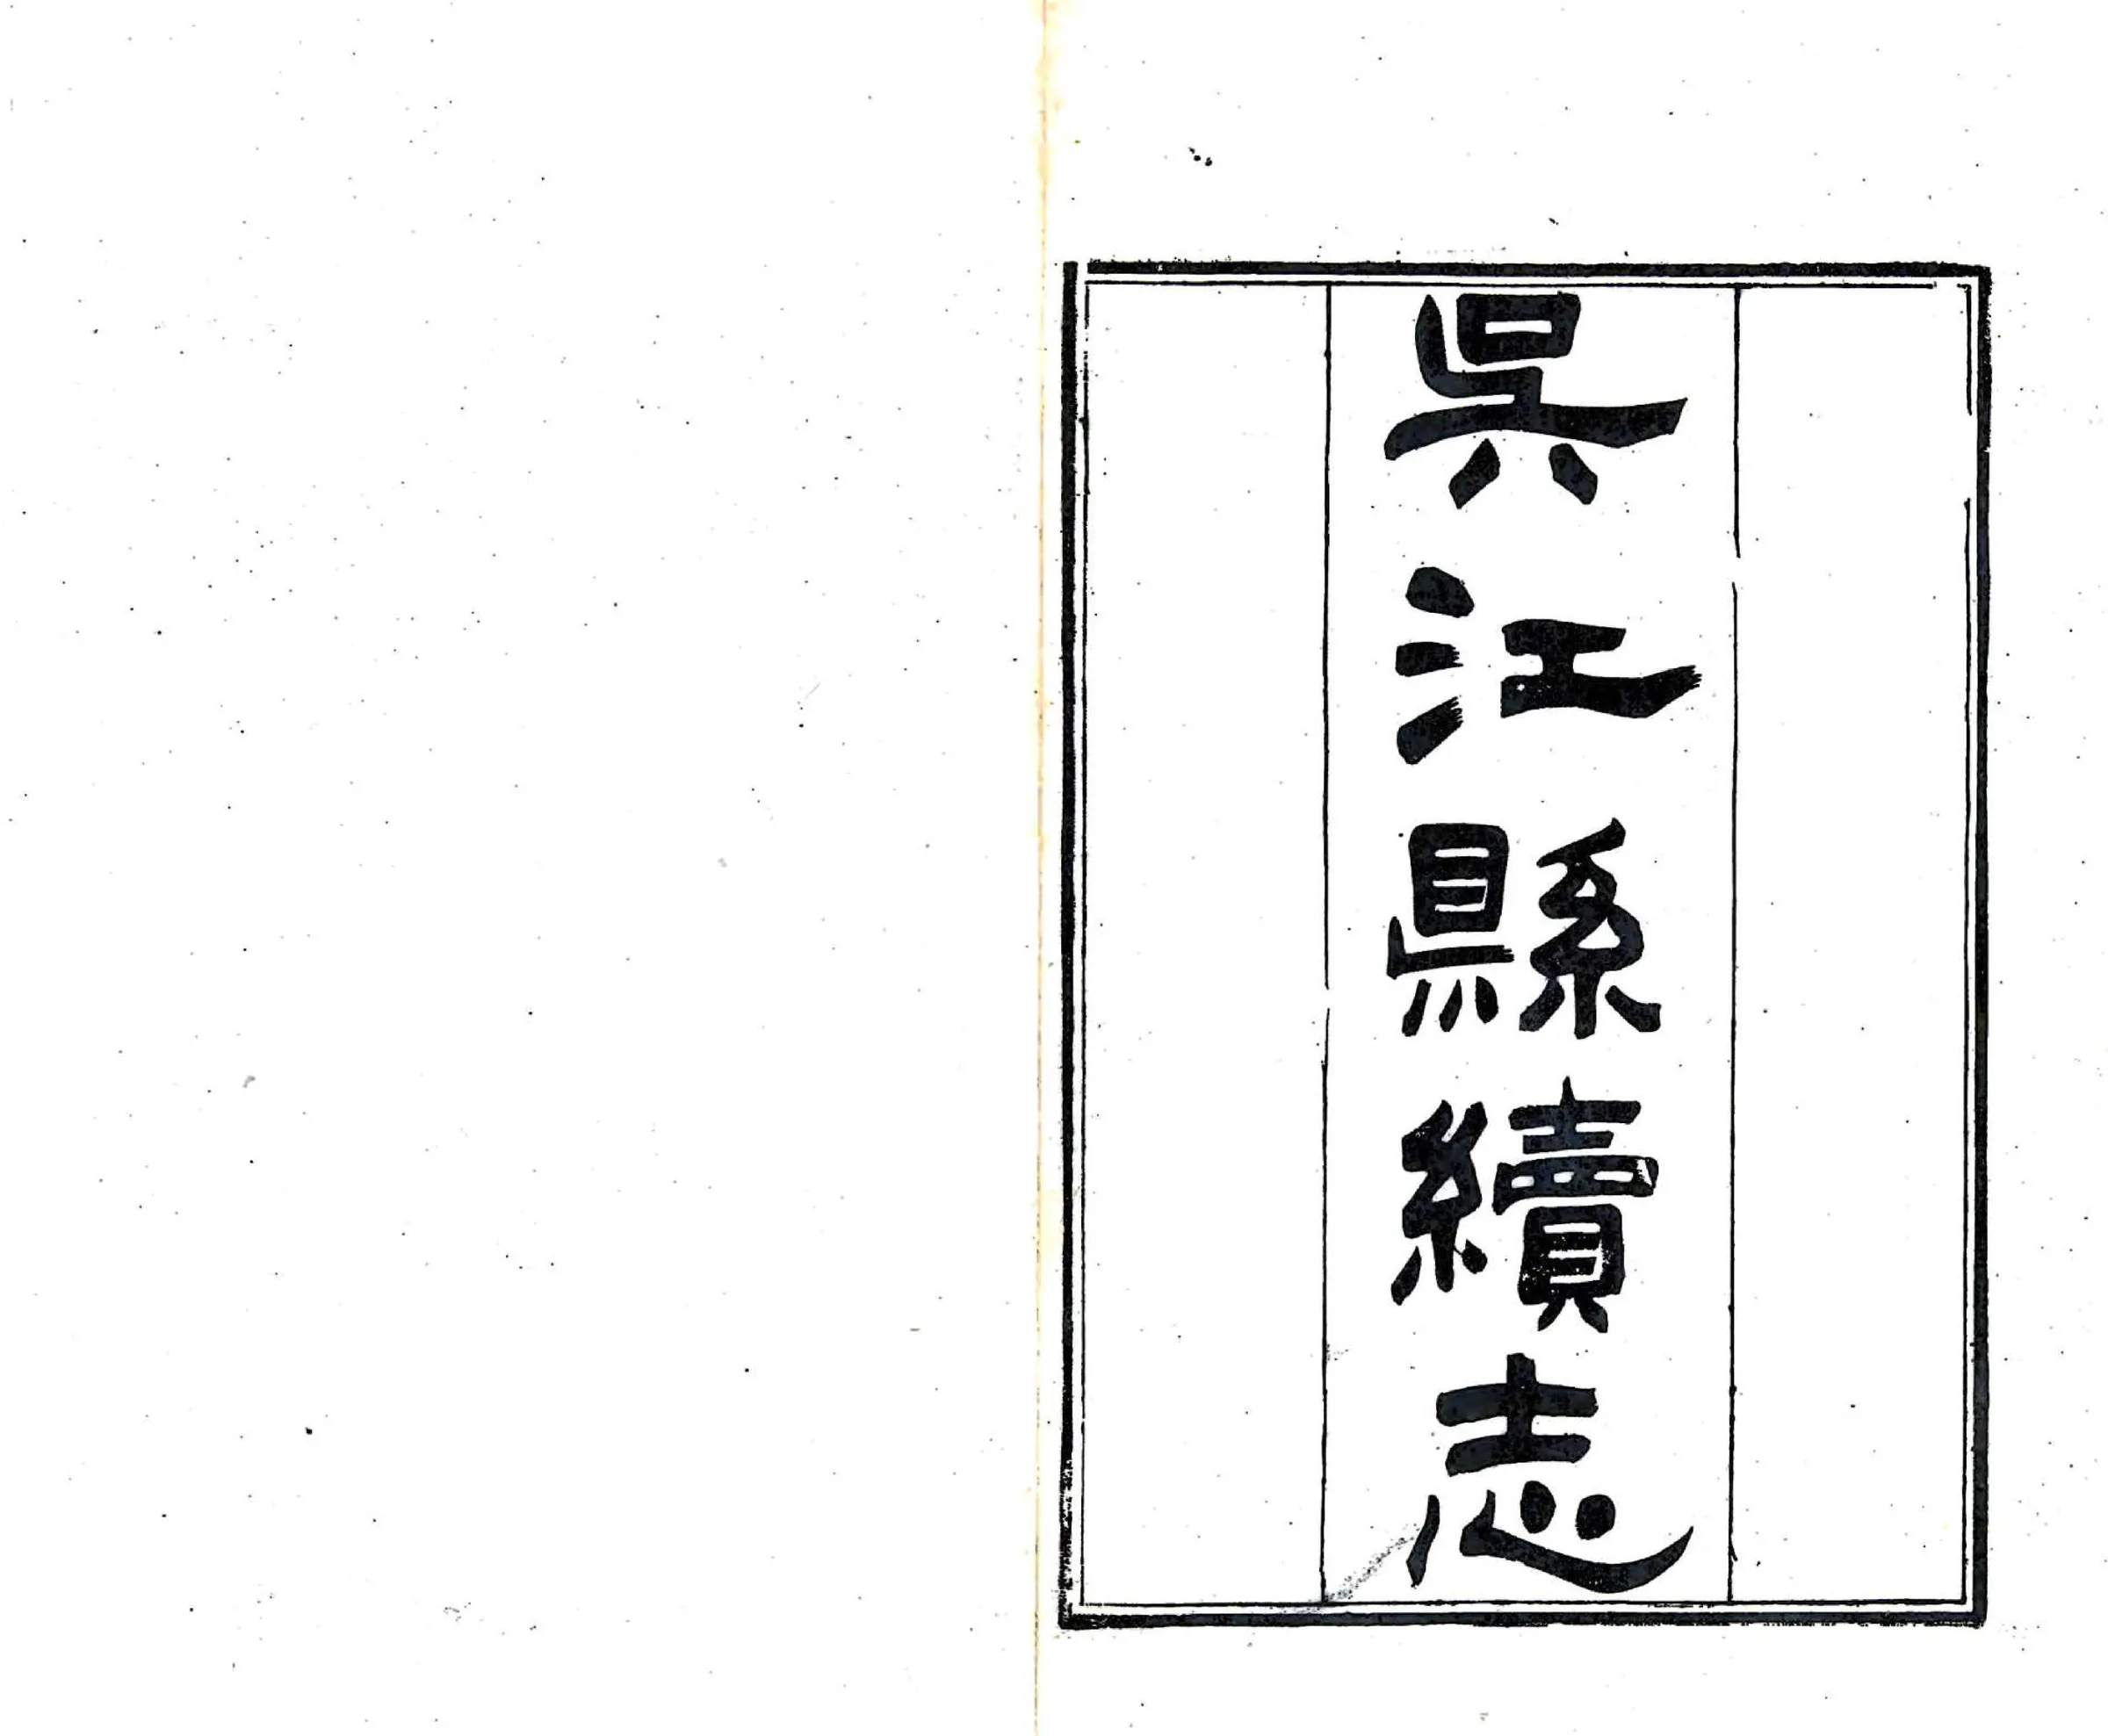 吳江縣續志